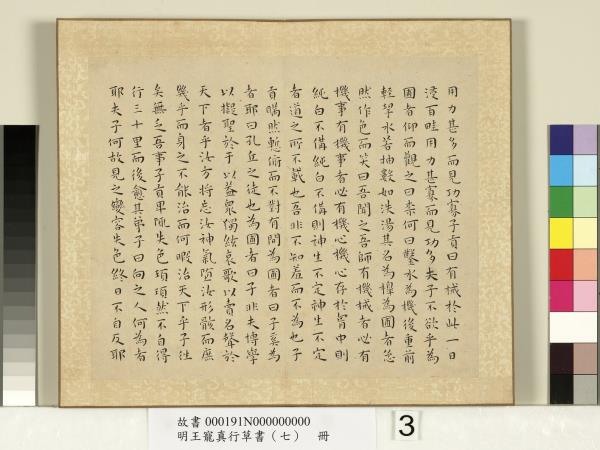 用力甚多而見功寡子貢曰有械於此一日
浸百畦用力甚寡而見功多夫子不欲乎為
圃者仰而觀之曰柰何曰鑿水為機後重前
輕挈水若抽數如泆湯其名為橰為圃者忿
然作色而笑曰吾聞之吾師有機械者必有
機事有機事者必有機心機心存於胷中則
純白不備純白不備則神生不定神生不定
者道之所不載也吾非不知羞而不為也子
貢瞞然慙俯而不對有間為圃者曰子奚為
者耶曰孔丘之徒也為圃者曰子非夫博學
以擬聖於于以蓋衆獨絃哀歌以賣名聲於
天下者乎汝方將忘汝神氣墮汝形骸而庶
幾乎而身之不能治而何暇治天下乎子往
矣無乏吾事子貢卑陬失色頊頊然不自得
行三十里而後愈其弟子曰向之人何為者
耶夫子何故見之變容失色終日不自反耶
故書 000191N000000000
明王寵真行草書（七） 冊
3